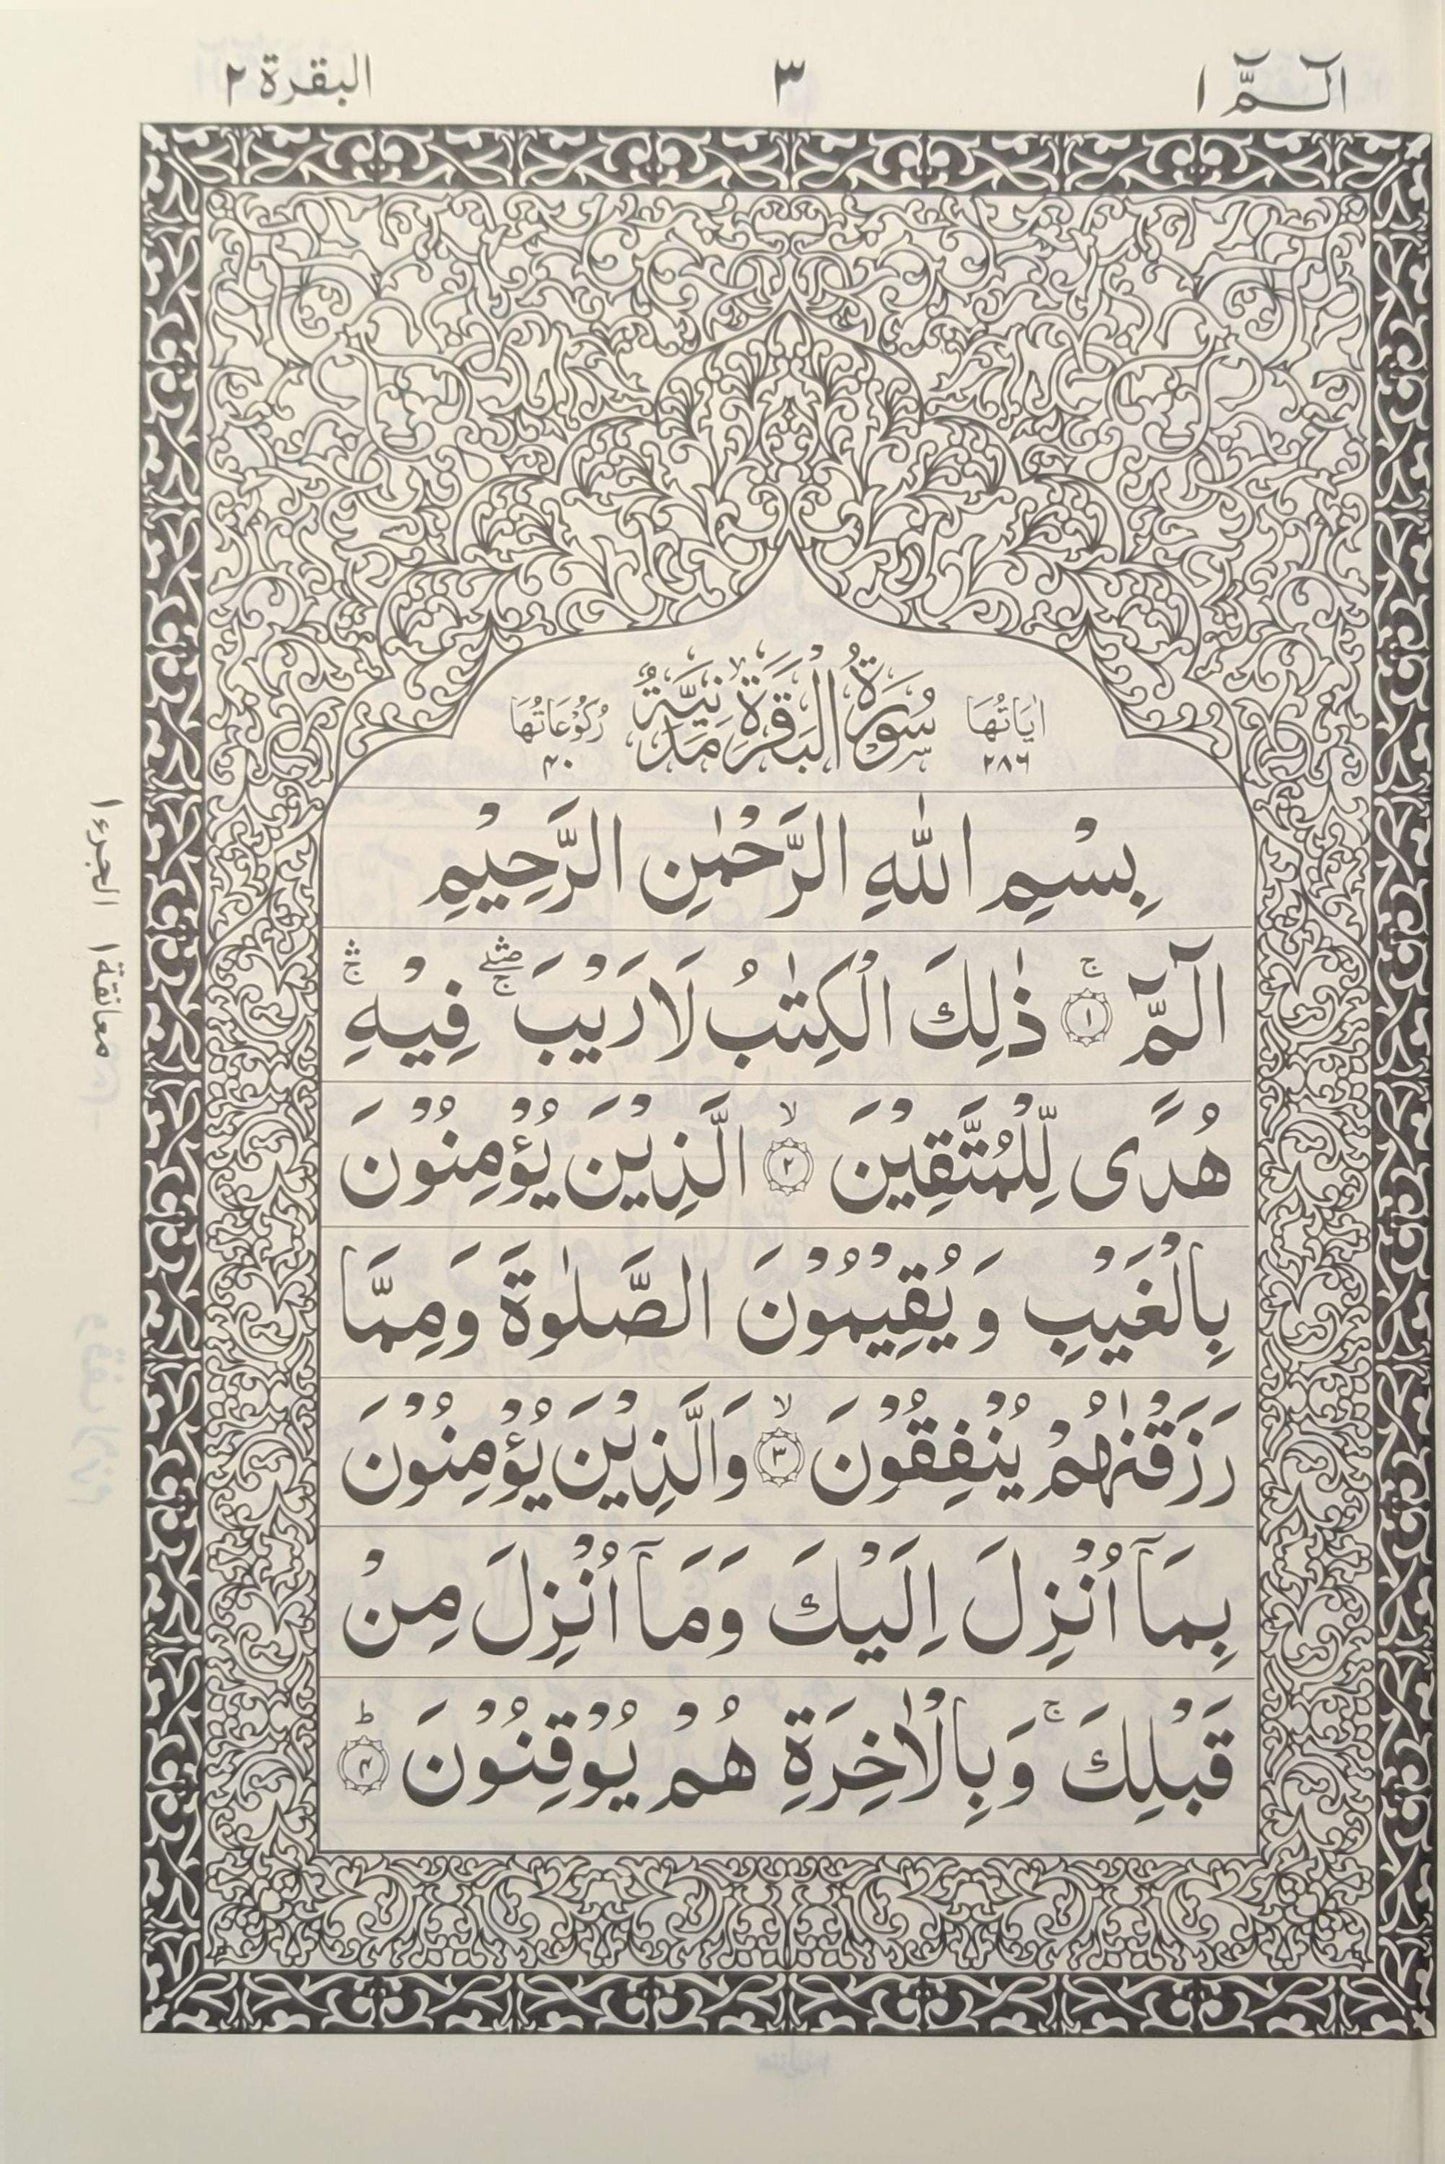 الٓـمّٓ ١
٣
البقرة ٢
اٰيَاتُهَا ٢٨٦
سُوْرَةُ الْبَقَرَةِ مَدَنِيَّةٌ
رُكُوْعَاتُهَا ٤٠
بِسْمِ اللّٰهِ الرَّحْمٰنِ الرَّحِيْمِ
الٓمّٓ ۚ﴿١﴾ ذٰلِكَ الْكِتٰبُ لَا رَيْبَ ۖۚ فِيْهِ ۛۚ
هُدًى لِّلْمُتَّقِيْنَ ۙ﴿٢﴾ الَّذِيْنَ يُؤْمِنُوْنَ
بِالْغَيْبِ وَيُقِيْمُوْنَ الصَّلٰوةَ وَمِمَّا
رَزَقْنٰهُمْ يُنْفِقُوْنَ ۙ﴿٣﴾ وَالَّذِيْنَ يُؤْمِنُوْنَ
بِمَآ اُنْزِلَ اِلَيْكَ وَمَآ اُنْزِلَ مِنْ
قَبْلِكَ ۚ وَبِالْاٰخِرَةِ هُمْ يُوْقِنُوْنَ ؕ﴿٤﴾
معانقة ١ الجزء ١